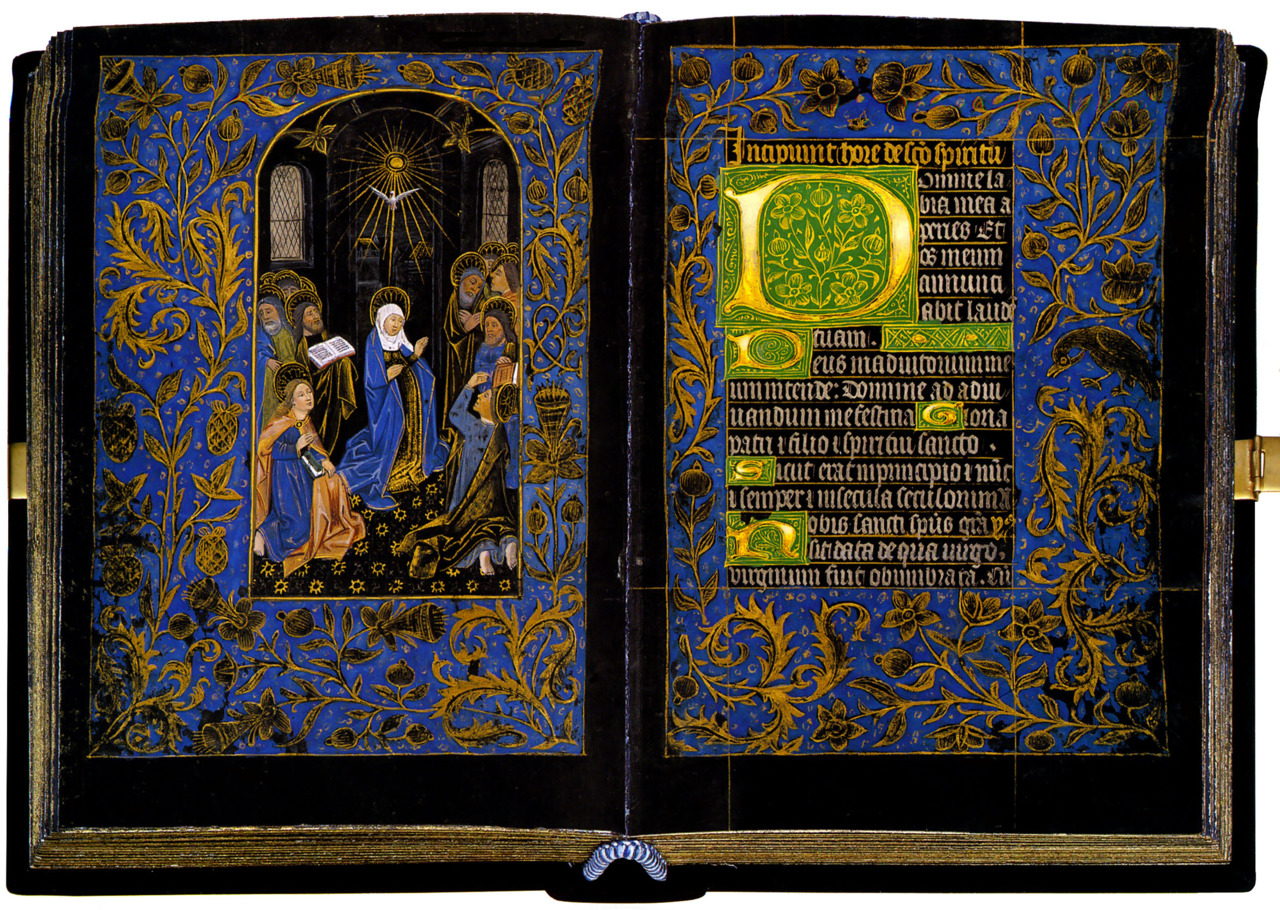 Incipiunt hore de sco spiritu
Domine la
bia mea a
peries · Et
os meum
annunci
abit laudē
tuam ·
Deus in adiutorium me
um intende : Domine ad adiu
uandum me festina Gloria
patri ⁊ filio ⁊ spiritui sancto ·
Sicut erat in principio ⁊ nūc
⁊ semper ⁊ in secula seculorum
Nobis sancti spūs grā
sit data de qua virgo
virginum fuit obumbrata · Cū